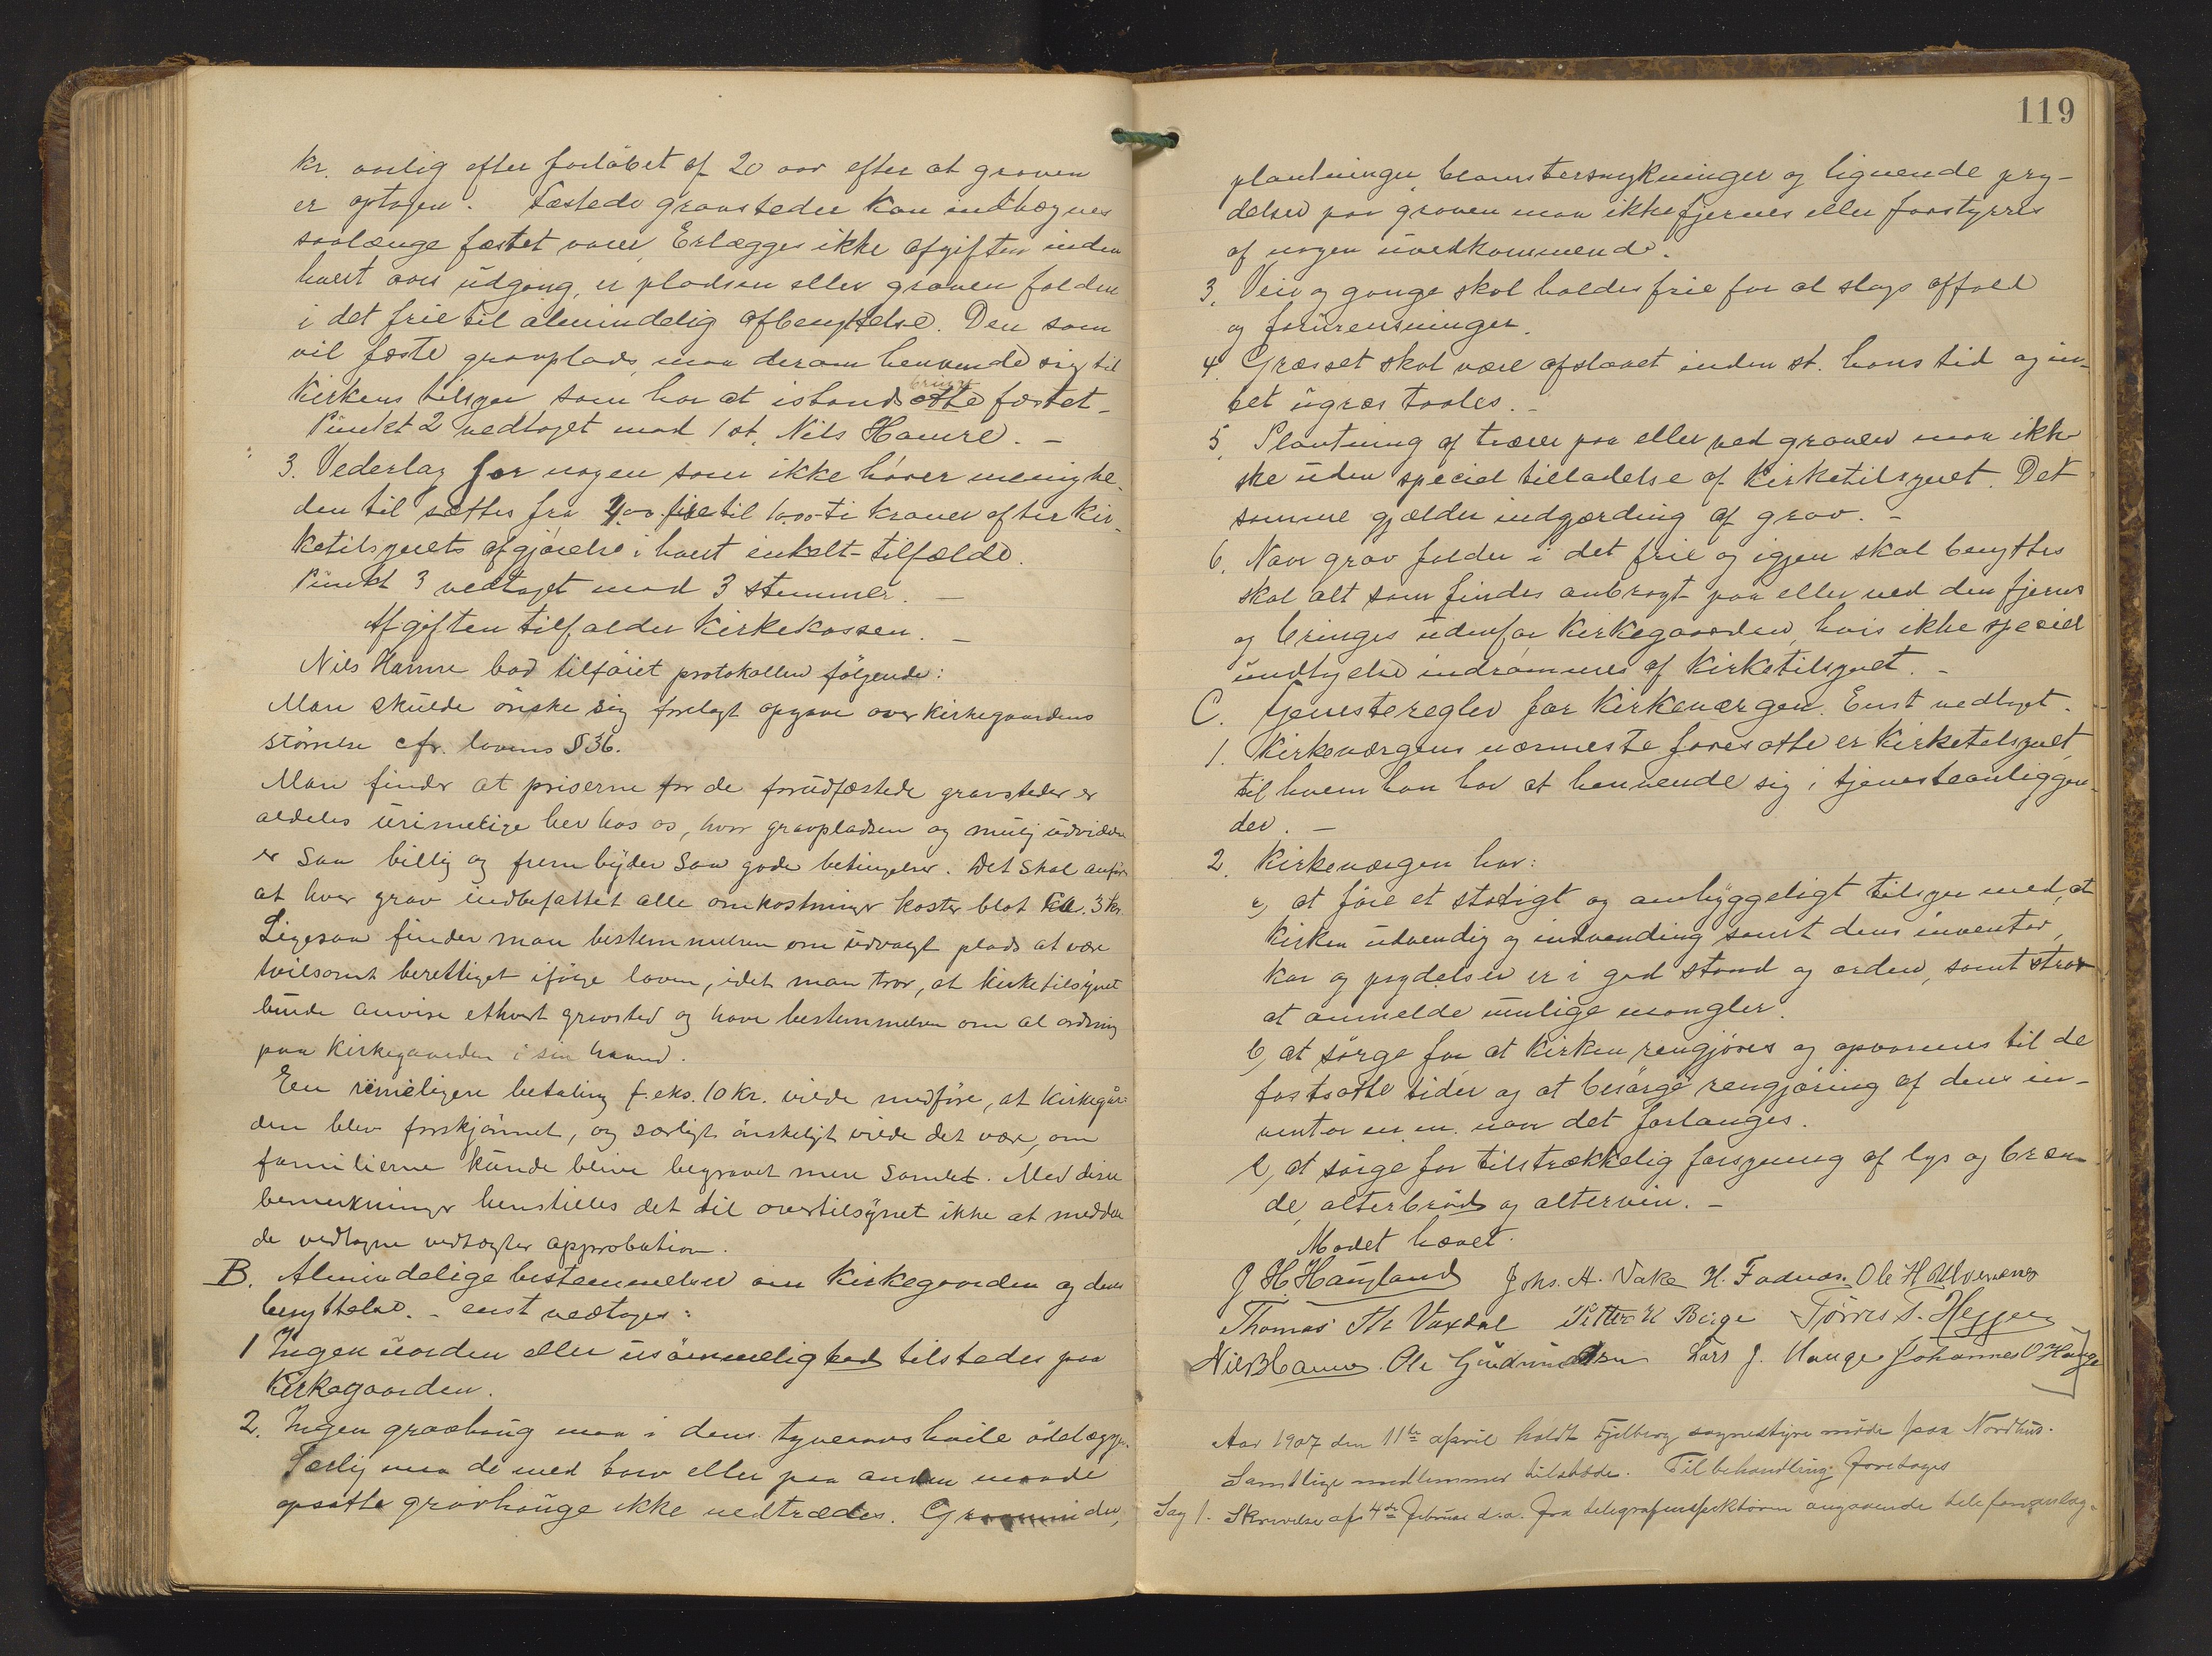 kr. aarlig efter forløbet af 20 aar efter at graven
er optagen. Fæstede gravsteder kan indhegnes
saalænge fæstet varer, Erlægges ikke afgiften inden
hvert aars üdgang, er pladsen eller graven falden
i det frie til almindelig afbenyttelse. Den som
vil fæste gravplads, maa derom henvende sig til
bringe
Kirkens tilsyn som har at istandsætte fæstet.
Pünkt 2 vedtaget mod 1 st. Nils Hamre. –
3. Vederlag for nogen som ikke hører menighe-
den til sættes fra 4,00 fire til 10,00 ti kroner efter kir-
ketilsynets afgjørelse i hvert enkelt tilfælde.
Pünkt 3 vedtaget mod 3 stemmer. –
Afgiften tilfalder Kirkekassen. –
Nils Hamre bad tilføiet protokollen følgende:
Man skülde ønske sig forelagt opgave over kirkegaardens
størrelse cfr. lovens § 36.
Man finder at priserne for de forüdfæstede gravsteder er
aldeles ürimelige her hos os, hvor gravpladsen og mülig üdvidelse
er saa billig og frembyder saa gode betingelser. Det skal anføres
at hver grav indbefattet alle omkostninger koster blot ca. 3 kr.
Ligesaa finder man bestemmelsen om üdvalgt plads at være
tvilsomt berettiget ifølge loven, idet man tror, at kirketilsynet
bürde anvise ethvert gravsted og have bestemmelsen om al ordning
paa Kirkegaarden i sin haand.
En rimeligere betaling f.eks. 10 kr. vilde medføre, at kirkegår-
den blev forskjønnet, og særligt ønskeligt vilde det være, om
familierne künde blive begravet mere samlet. Med disse
bemerkninger henstilles det til overtilsynet ikke at meddele
de vedtagne vedtægter approbation.
B. Almindelige bestemmelser om Kirkegaarden og dens
benyttelse. – enst vedtages:
1 Ingen üorden eller üsømmelighed tilstedes paa
Kirkegaarden.
2. Ingen gravhaüg maa i dens tyveaars hvile ødelægges.
Særlig maa de med torv eller paa anden maade
opsatte gravhaüge ikke nedtrædes. Gravminder,
119
plantninger, blomstersmykninger og lignende pry-
delser paa graven maa ikke fjernes eller forstyrres
af nogen üvedkommende.
3, Veie og gange skal holdes frie for al slags affald
og forürensninger.
4. Græsset skal være afslaaet inden st. hans tid og in-
tet ügræs taales. –
5, Plantning af træer paa eller ved graven maa ikke
ske üden speciel tilladelse af Kirketilsynet. Det
samme gjælder indgærding af grav. –
6, Naar grav falder i det frie og igjen skal benyttes
skal alt som findes anbragt paa eller ved den fjernes
og bringes üdenfor Kirkegaarden, hvis ikke speciel
ündtagelse indrømmes af Kirketilsynet. –
C. Tjenesteregler for Kirkeværgen. Enst vedtaget.
1. Kirkeværgens nærmeste foresatte er Kirketilsynet,
til hvem han har at henvende sig i tjenesteanliggen-
der. –
2, Kirkeværgen har:
a, at føre et stadigt og omhyggeligt tilsyn med, at
Kirken üdvendig og indvending samt dens inventar,
kar og prydelser er i god stand og orden, samt strax
at anmelde mulige mangler.
b, at sørge for at Kirken rengjøres og opvarmes til de
fastsatte tider og at besørge rengjøring af dens in-
ventar m. m. naar det forlanges.
c, at sørge for tilstrækkelig forsyning af lys og bræn-
de, alterbrød og altervin. –
Mødet hævet.
J. H. Haugland Johs. A. Vake H. Fadnes. Ole H Ulvenæs
Thomas Th Vaxdal Petter K Berge Tørres T. Heggen
Nils Hamre. Ole Güdmündsen Lars J. Hauge Johannes O Hauge
Aar 1907 den 11te april holdt Fjelberg sognestyre møde paa Nordhüs.
Samtlige medlemmer tilstede. Til behandling foretoges
Sag 1. Skrivelse af 4de februar d.a. fra telegrafinspektøren angaaende telefonanlæg-